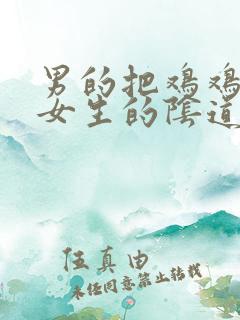 男的把鸡鸡
女生的陰道
任真由
未经同意禁止转载